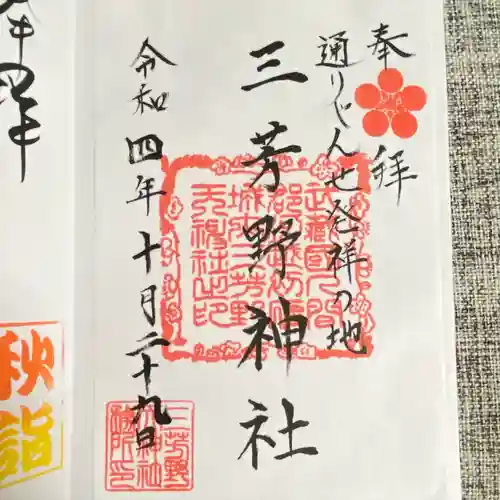 奉拝
通りゃんせ発祥の地
三芳野神社
令和四年十月二十九日
武蔵國入間
郡川越初雁
城内三芳野
天神社之印
三芳野
神社
秋詣
拝